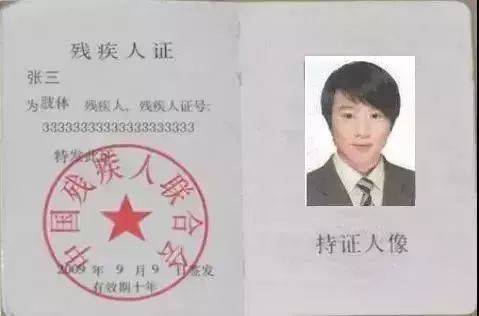 残疾人证
张三
为肢体 残疾人、残疾人证号:
33333333333333333333
特发此证
中国残疾人联合会
2009 年 9 月 9 日签发
有效期十年
持证人像